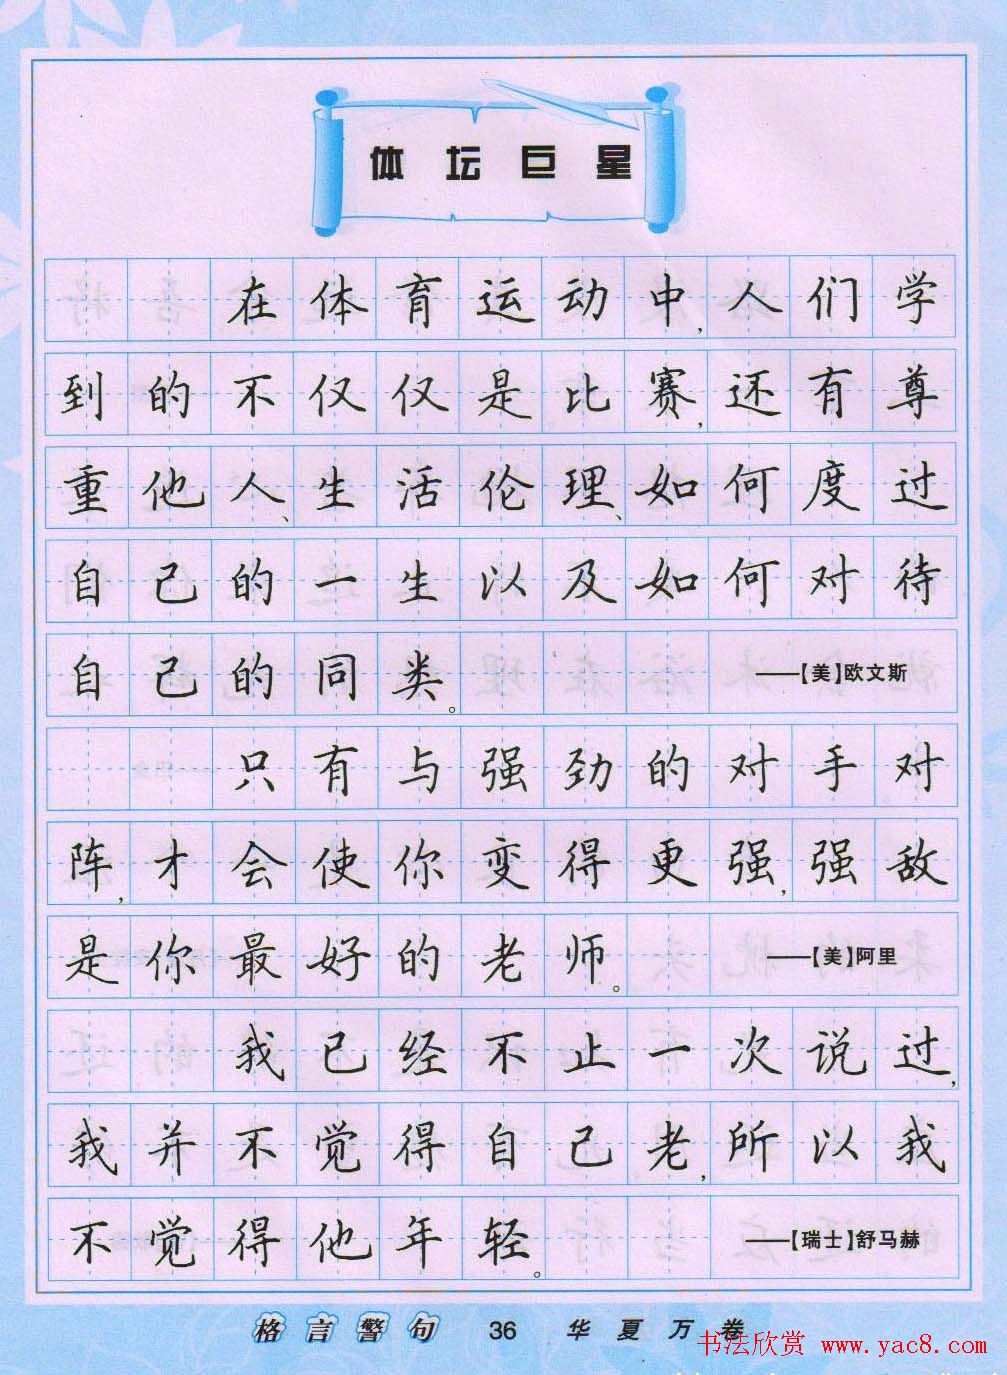 体坛巨星
在体育运动中,人们学
到的不仅仅是比赛,还有尊
重他人、生活伦理、如何度过
自己的一生以及如何对待
自己的同类。——【美】欧文斯
只有与强劲的对手对
阵,才会使你变得更强,强敌
是你最好的老师。——【美】阿里
我已经不止一次说过,
我并不觉得自己老,所以我
不觉得他年轻。——【瑞士】舒马赫
格言警句 36 华夏万卷
书法欣赏 www.yac8.com